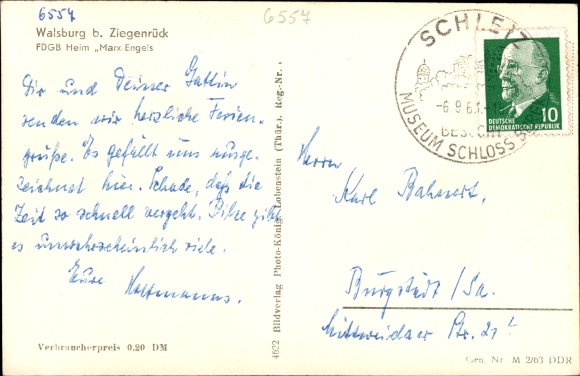 6557
6557
Walsburg b. Ziegenrück
FDGB Heim „Marx-Engels
Dir und Deiner Gattin
senden wir herzliche Ferien-
grüße. Es gefällt uns ausge-
zeichnet hier. Schade, daß die
Zeit so schnell vergeht. Pilze gibt
es unwahrscheinlich viele.
Eure
Verbraucherpreis 0.20 DM
4622 Bildverlag Photo-König, Lobenstein (Thür.) Reg.-Nr.
SCHLEIZ
-6.9.63.-
BESUCHT
MUSEUM SCHLOSS
10
DEUTSCHE
DEMOKRATISCHE REPUBLIK
Herrn
Karl Bahnert.
Burgstädt/Sa.
Mittweidaer Str. 21
Gen. Nr. M 2/63 DDR